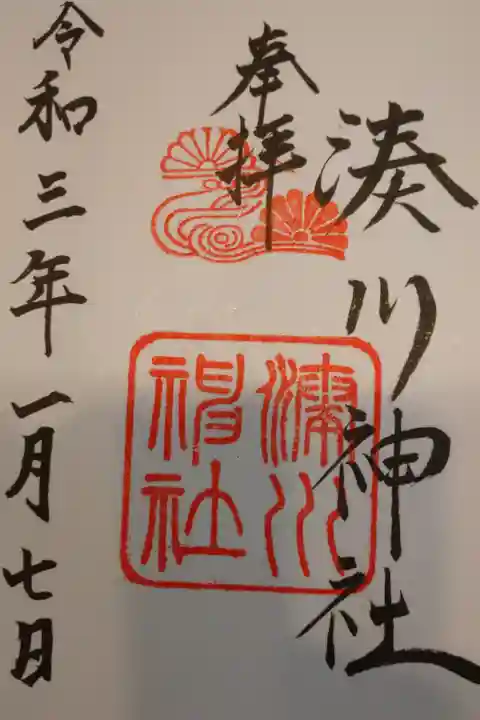 奉拝
湊川神社
湊川神社
令和三年一月七日